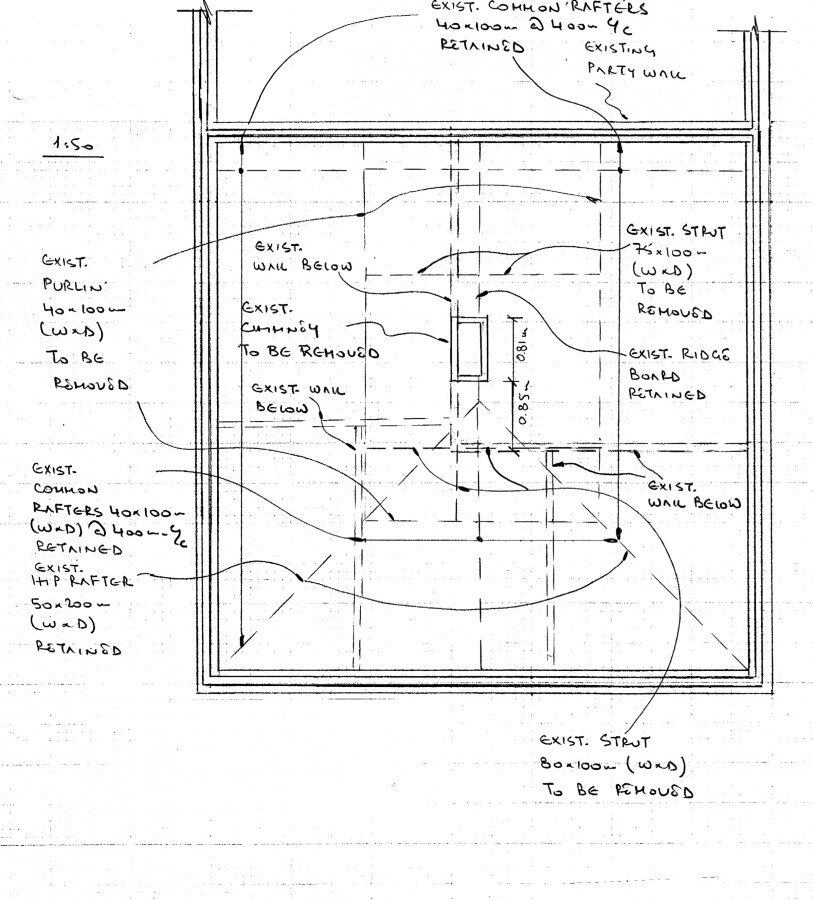 EXIST. COMMON RAFTERS
40x100mm @ 400mm c/c
RETAINED
EXISTING
PARTY WALL
1:50
EXIST.
PURLIN
40x100mm
(WxD)
TO BE
REMOVED
EXIST.
WALL BELOW
EXIST.
CHIMNEY
TO BE REMOVED
EXIST. WALL
BELOW
EXIST. STRUT
75x100mm
(WxD)
TO BE
REMOVED
0.81m
0.85m
EXIST. RIDGE
BOARD
RETAINED
EXIST.
COMMON
RAFTERS 40x100mm
(WxD) @ 400mm c/c
RETAINED
EXIST.
HIP RAFTER
50x200mm
(WxD)
RETAINED
EXIST.
WALL BELOW
EXIST. STRUT
80x100mm (WxD)
TO BE REMOVED